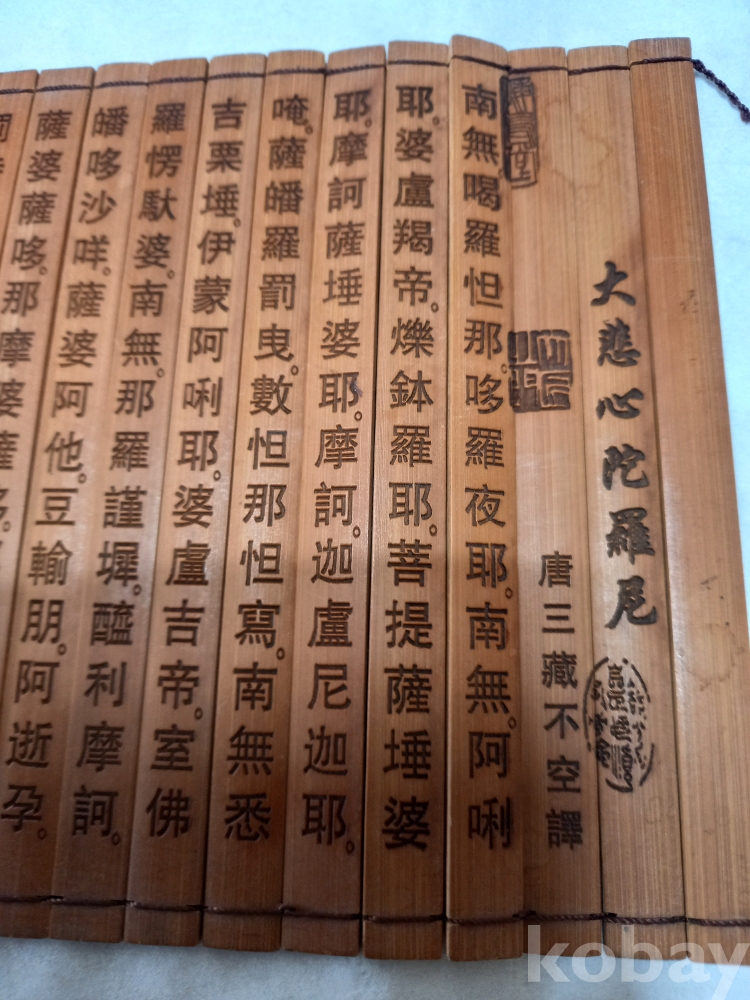 大悲心陀羅尼
唐三藏不空譯
南無。喝羅怛那。哆羅夜耶。南無。阿唎
耶。婆盧羯帝。爍鉢羅耶。菩提薩埵婆
耶。摩訶薩埵婆耶。摩訶。迦盧尼迦耶。
唵。薩皤羅罰曳。數怛那怛寫。南無悉
吉栗埵。伊蒙阿唎耶。婆盧吉帝。室佛
羅愣馱婆。南無。那羅謹墀。醯利摩訶
皤哆沙咩。薩婆阿他。豆輸朋。阿逝孕。
薩婆薩哆。那摩婆薩
kobay